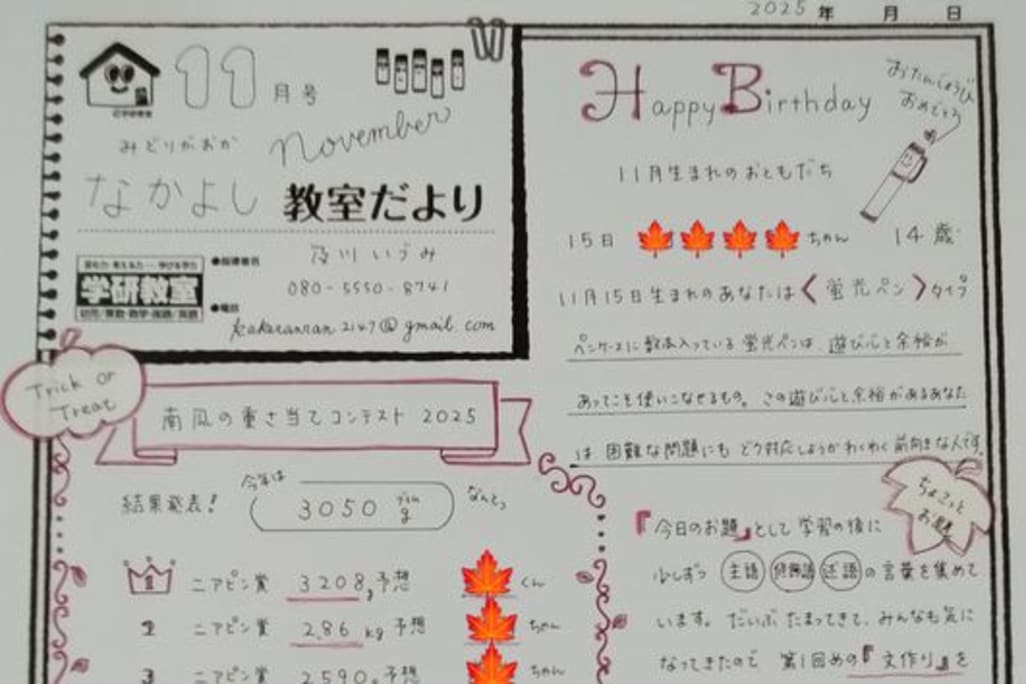 2025年 月 日
11月号
みどりがおか
November
なかよし 教室だより
●指導者名
及川 いづみ
学研教室
●電話
080-5550-8741
kakeranran2147@gmail.com
Happy Birthday
おたんじょうび
おめでとう
11月生まれのおともだち
15日 ちゃん 14歳
11月15日生まれのあなたは〈蛍光ペン〉タイプ
ペンケースに数本入っている蛍光ペンは、遊び心と余裕が
あってこそ使いこなせるもの。この遊び心と余裕があるあなた
は困難な問題にもどう対応しようかわくわく前向きな人です。
Trick or
Treat
南瓜の重さ当てコンテスト 2025
結果発表！ 今年は 3050 g なんと、
1 ニアピン賞 3208g予想 くん
2 ニアピン賞 2.86kg予想 ちゃん
3 ニアピン賞 2590g予想 ちゃん
ちょこっと
お題
『今日のお題』として学習の後に
少しずつ 主語 修飾語 述語 の言葉を集めて
います。だいぶたまってきて、みんなも気に
なってきたので 第1回めの『文作り』を